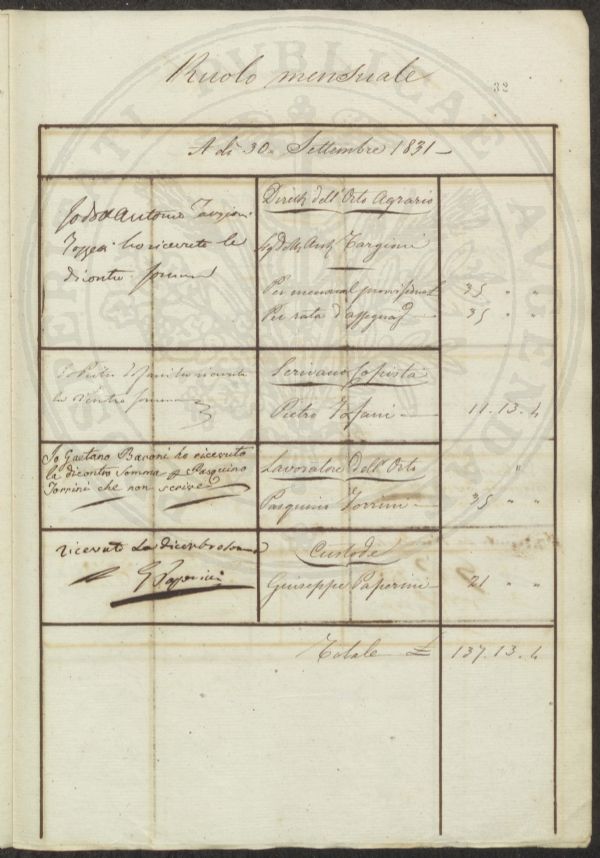 Ruolo mensuale
32
A dì 30. Settembre 1831
Io Dr Antonio Targioni
Tozzetti ho ricevuto la
di contro somma
Dirett. dell'Orto Agrario
Sig. Dott. Ant. Targioni
Per mensual provvisione 35 " "
Per rata d'assegnaz. 35 " "
Io Pietro Tofani ho ricevuto
la dicontro somma
Scrivano Copista
Pietro Tofani 11.13.4
Io Gaetano Baroni ho ricevuto
la dicontro somma p Pasquino
Torrini che non scrive
Lavoratore dell'Orto "
Pasquino Torrini 35 " "
ricevuto la dicontro somma
G Paperini
Custode
Guiseppe Paperini 21 " "
Totale £ 137.13.4
SENATI PUBLICAE